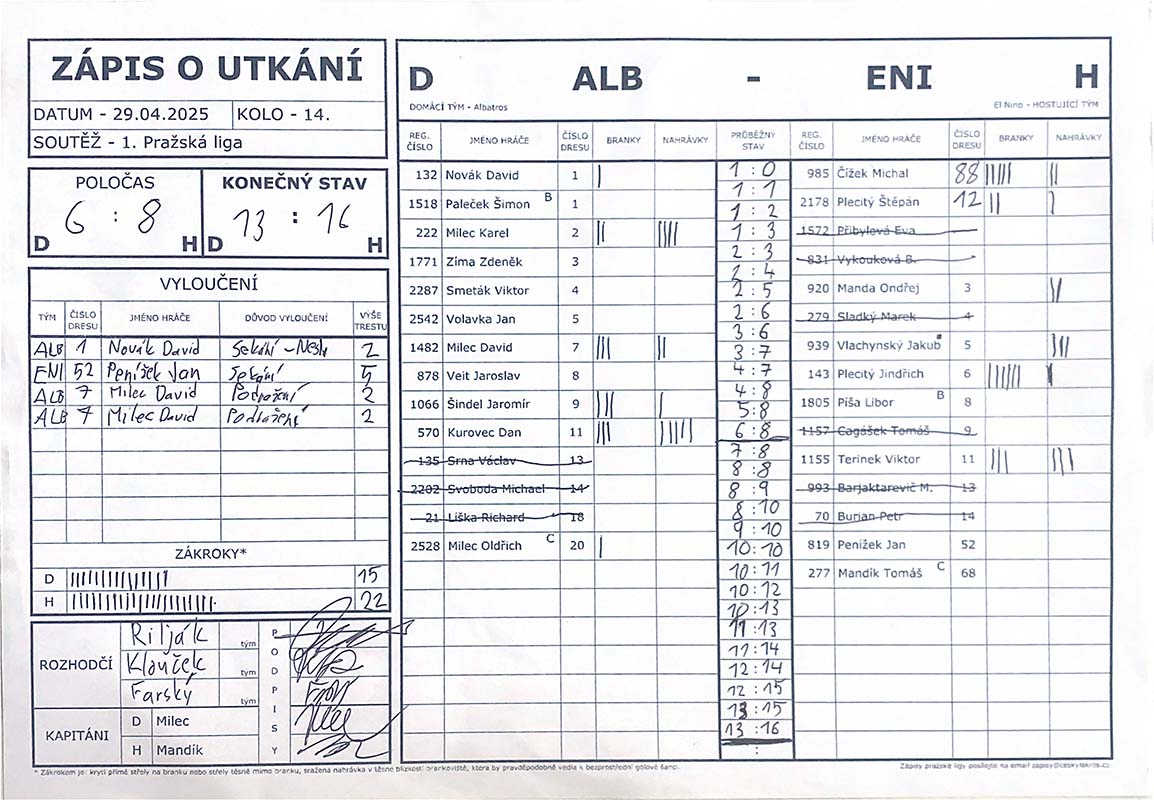 ZÁPIS O UTKÁNÍ
DATUM - 29.04.2025 KOLO - 14.
SOUTĚŽ - 1. Pražská liga
POLOČAS
6 : 8
D H
KONEČNÝ STAV
13 : 16
D H
VYLOUČENÍ
TÝM ČÍSLO DRESU JMÉNO HRÁČE DŮVOD VYLOUČENÍ VÝŠE TRESTU
ALB 1 Novák David Sekání - Nesp 2
ENI 52 Penížek Jan Sekání 5
ALB 7 Milec David Podražení 2
ALB 7 Milec David Podražení 2
ZÁKROKY*
D 15
H 22
ROZHODČÍ
Rilják tým
Klouček tým
Farský tým
PODPISY
KAPITÁNI
D Milec
H Mandík
* Zákrokem je: krytí přímé střely na branku nebo střely těsně mimo branku, sražená nahrávka v těsné blízkosti brankoviště, která by pravděpodobně vedla k bezprostřední gólové šanci.
D ALB - ENI H
DOMÁCÍ TÝM - Albatros El Nino - HOSTUJÍCÍ TÝM
REG. ČÍSLO JMÉNO HRÁČE ČÍSLO DRESU BRANKY NAHRÁVKY PRŮBĚŽNÝ STAV REG. ČÍSLO JMÉNO HRÁČE ČÍSLO DRESU BRANKY NAHRÁVKY
132 Novák David 1 |
1518 Paleček Šimon B 1
222 Milec Karel 2 || ||||
1771 Zíma Zdeněk 3
2287 Smeták Viktor 4
2542 Volavka Jan 5
1482 Milec David 7 ||| ||
878 Veit Jaroslav 8
1066 Šindel Jaromír 9 ||| |
570 Kurovec Dan 11 ||| |||||
135 Srna Václav 13
2202 Svoboda Michael 14
21 Liška Richard 18
2528 Milec Oldřich C 20 |
1 : 0
1 : 1
1 : 2
1 : 3
2 : 3
2 : 4
2 : 5
2 : 6
3 : 6
3 : 7
4 : 7
4 : 8
5 : 8
6 : 8
7 : 8
8 : 8
8 : 9
8 : 10
9 : 10
10 : 10
10 : 11
10 : 12
10 : 13
11 : 13
11 : 14
12 : 14
12 : 15
13 : 15
13 : 16
:
985 Čížek Michal 88 ||||| ||
2178 Plecitý Štěpán 12 || |
1572 Přibylová Eva
831 Vykouková B.
920 Manda Ondřej 3 ||
279 Sladký Marek 4
939 Vlachynský Jakub 5 |||
143 Plecitý Jindřich 6 ||||||
1805 Píša Libor B 8
1157 Cagášek Tomáš 9
1155 Terinek Viktor 11 ||| |||
993 Barjaktarevič M. 13
70 Burian Petr 14
819 Penížek Jan 52
277 Mandík Tomáš C 68
Zápisy pražské ligy posílejte na email zapisy@ceskylakros.cz